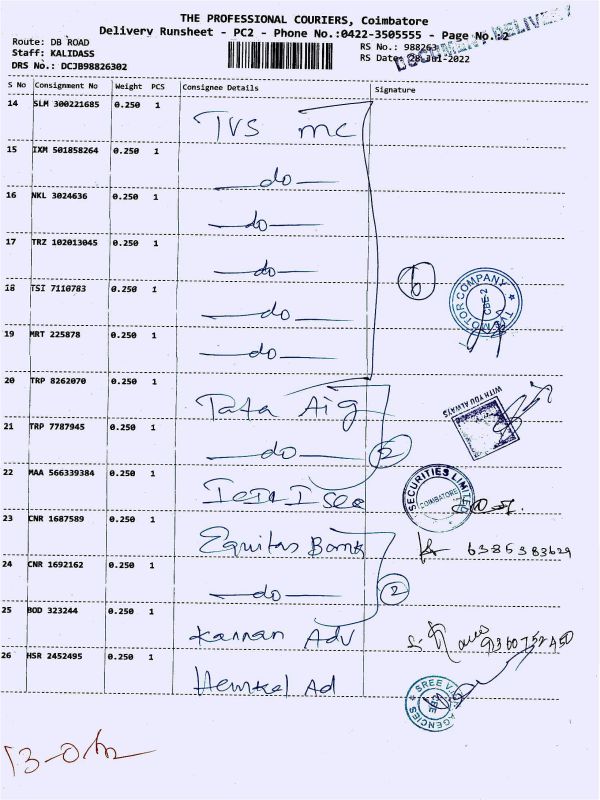 THE PROFESSIONAL COURIERS, Coimbatore
Delivery Runsheet - PC2 - Phone No.:0422-3505555 - Page No.:2
DOCUMENT DELIVERY
Route: DB ROAD
Staff: KALIDASS
DRS No.: DCJB98826302
RS No.: 988263
RS Date: 28-Jul-2022
S No Consignment No Weight PCS Consignee Details Signature
14 SLM 300221685 0.250 1 TVS mc
15 IXM 501858264 0.250 1 do
16 NKL 3024636 0.250 1 do
17 TRZ 102013045 0.250 1 do
18 TSI 7110783 0.250 1 do
6
TVS MOTOR COMPANY CBE-2
19 MRT 225878 0.250 1 do
20 TRP 8262070 0.250 1 Tata Aig
WITH YOU ALWAYS
21 TRP 7787945 0.250 1 do
2
22 MAA 566339384 0.250 1 ICICI Sec
SECURITIES LIMITED COIMBATORE
23 CNR 1687589 0.250 1 Equitas Bank
6385383629
24 CNR 1692162 0.250 1 do
2
25 BOD 323244 0.250 1 Kannan Adv
9360752450
26 HSR 2452495 0.250 1 Henkel Ad
SREE AGENCIES CBE